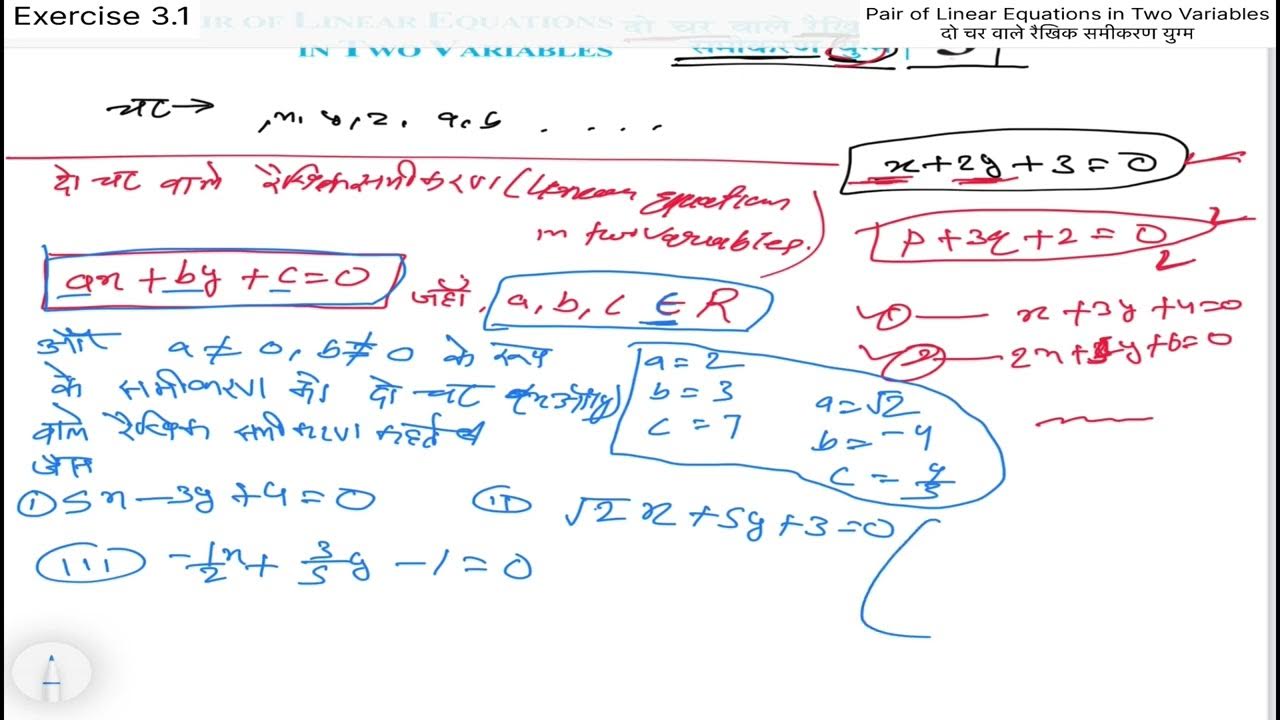 Exercise 3.1
Pair of Linear Equations in Two Variables
दो चर वाले रैखिक समीकरण युग्म
PAIR OF LINEAR EQUATIONS दो चर वाले रैखिक
IN TWO VARIABLES समीकरण युग्म 3
चर → , x, y, z, a, b . . . .
x + 2y + 3 = 0
दो चर वाले रैखिक समीकरण (Linear Equations
in two variables.)
p + 3q + 2 = 0
ax + by + c = 0 जहाँ, a, b, c ∈ R
① — x + 3y + 4 = 0
② — 2x + y + 6 = 0
और a ≠ 0, b ≠ 0 के रूप
के समीकरण को दो चर
वाले रैखिक समीकरण कहते
जैसे
a = 2
b = 3
c = 7
a = √2
b = -4
c = 4/3
① 5x - 3y + 4 = 0 ⓘⓘ √2 x + 5y + 3 = 0
(iii) -1/2 x + 3/5 y - 1 = 0